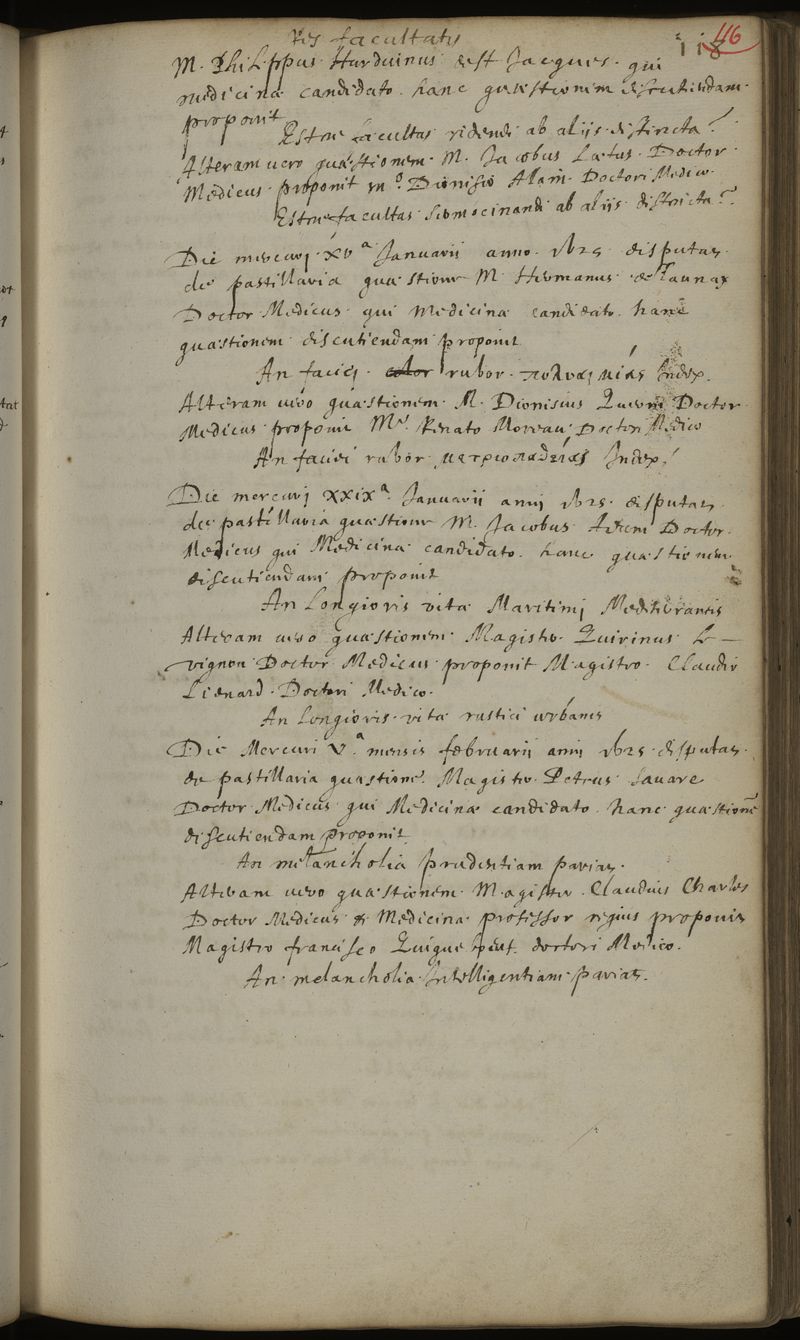 res facultatis
118 116
M. Philippus Harduinus de St Jacques. qui
medicinæ candidato. hanc quæstionem discutiendam.
proponit
Estne facultas ridendi ab alijs distincta?
Alteram uero quæstionem. M. Jacobus Lætus. Doctor.
Medicus. proponit m.º Dionisio Alain. Doctori Medico.
Estne facultas sermocinandi ab alijs distincta?
Die mercurij xv.ª Januarii anno. disputat.
de pastillaria quæstione M. Hermanus de Launay
Doctor Medicus. qui medicinæ candidato. hanc
quæstionem discutiendam proponit
An faciei. rubor. πολυαιμίας Index.
Alteram uero quæstionem. M. Dionisius Doctor
Medicus. proponit Mº. Renato Moreau Doctori Medico
An faciei rubor μετριοπαθείας Index?
Die mercurij XXIXª. Januarii anni disputat.
de pastillaria quæstione M. Jacobus Doctor.
Medicus qui Medicinæ candidato. hanc quæstionem
discutiendam proponit
An Longioris vitæ Maritimi Mediterraneis
Alteram uero quæstionem. Magister. Quirinus Le
vignon Doctor Medicus proponit Magistro. Claudio
Lienard. Doctori Medico.
An Longioris. vitæ rustici urbanis
Die Mercurii V.ª mensis februarii anni disputat.
de pastillaria quæstione. Magister. Petrus Savare
Doctor. Medicus qui Medicinæ candidato. hanc quæstionē
discutiendam proponit
An melancholia prudentiam pariat.
Alteram uero quæstionem. Magister. Claudius Charles
Doctor Medicus & Medicinæ professor regius proponit
Magistro francisco doctori Medico.
An. melancholia Intelligentiam. pariat.